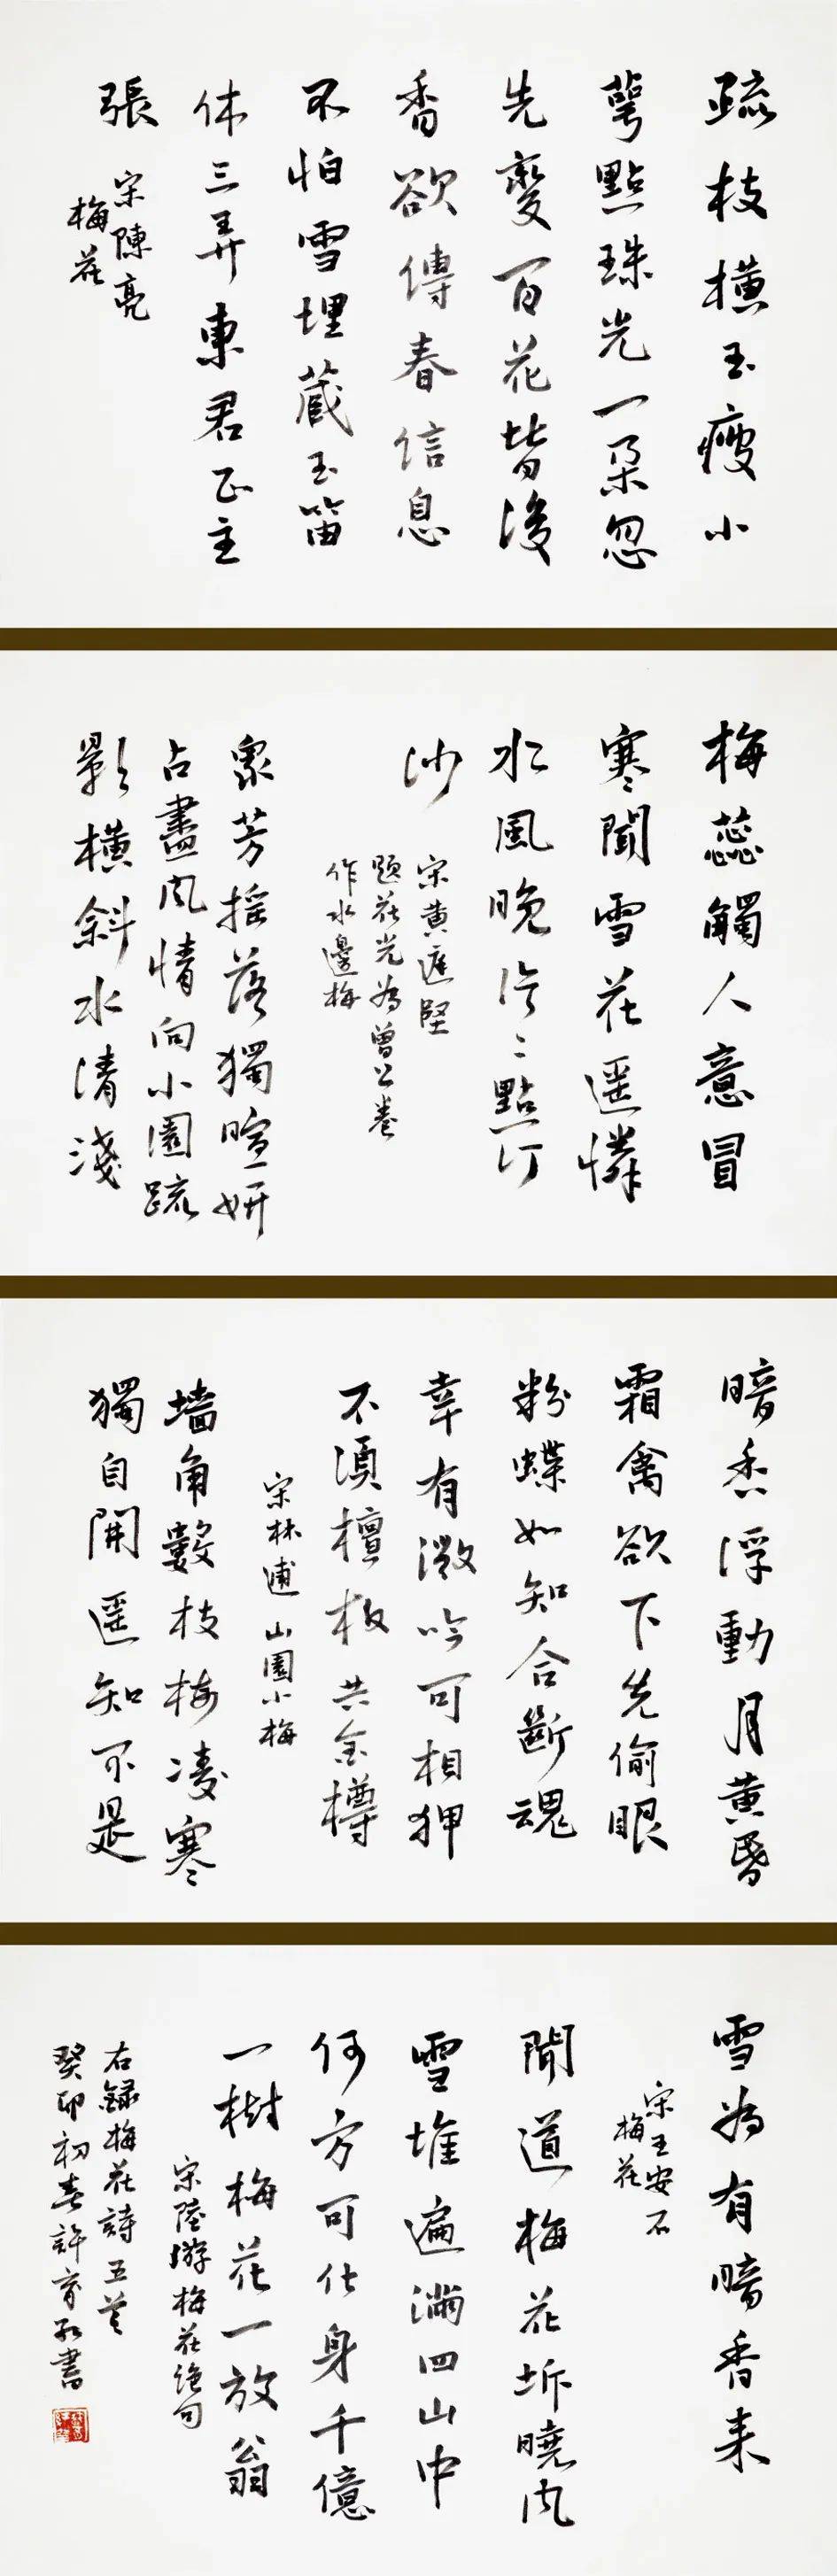 疏枝橫玉瘦小
萼點珠光一朵忽
先變百花皆後
香欲傳春信息
不怕雪埋藏玉笛
休三弄東君正主
張
宋陳亮
梅花
梅蕊觸人意冒
寒開雪花遥憐
水風晚片々點汀
沙
宋黄庭堅
題花光為曾公卷
作水邊梅
衆芳摇落獨暄妍
占盡風情向小園疏
影橫斜水清淺
暗香浮動月黄昏
霜禽欲下先偷眼
粉蝶如知合斷魂
幸有微吟可相狎
不須檀板共金樽
宋林逋山園小梅
墙角數枝梅凌寒
獨自開遥知不是
雪為有暗香来
宋王安石
梅花
聞道梅花坼曉風
雪堆遍滿四山中
何方可化身千億
一樹梅花一放翁
宋陸游梅花絶句
右録梅花詩五首
癸卯初春許書